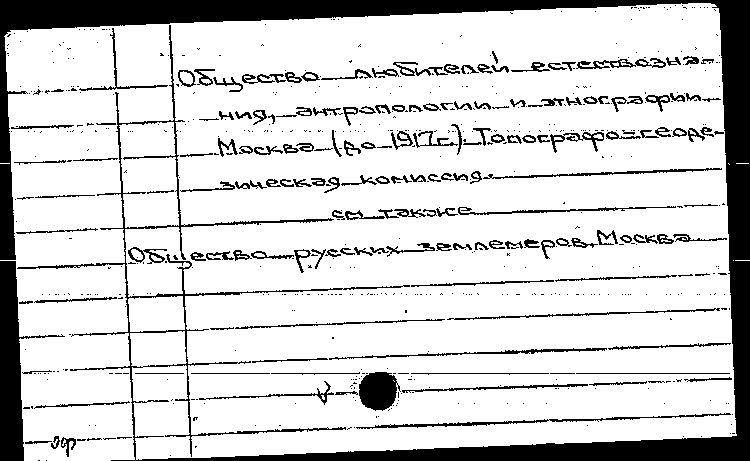 Общество любителей естествозна-
ния, антропологии и этнографии.
Москва (до 1917г.). Топографо-геоде-
зическая комиссия.
см. также
Общество русских землемеров. Москва